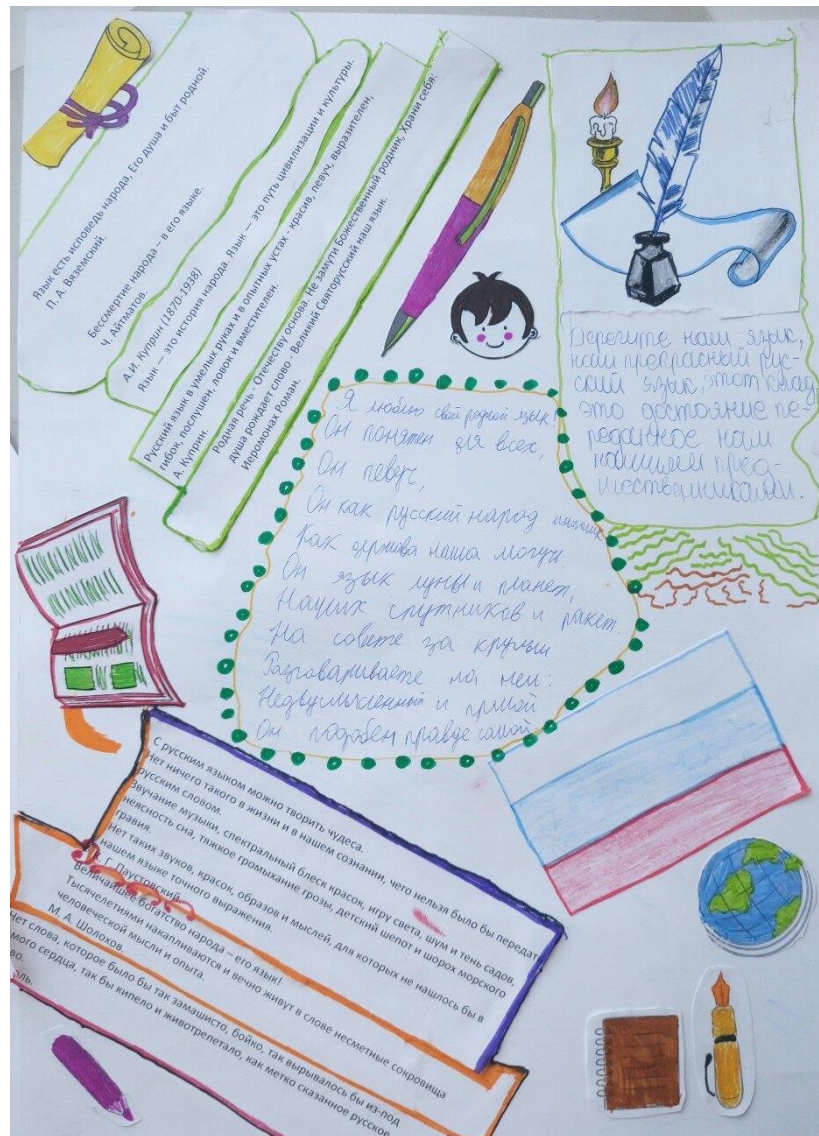 Язык есть исповедь народа, Его душа и быт родной.
П. А. Вяземский.
Бессмертие народа – в его языке.
Ч. Айтматов.
А.И. Куприн (1870-1938)
Язык — это история народа. Язык — это путь цивилизации и культуры.
Русский язык в умелых руках и в опытных устах - красив, певуч, выразителен,
гибок, послушен, ловок и вместителен.
А. Куприн.
Родная речь - Отечеству основа. Не замути Божественный родник, Храни себя:
душа рождает слово - Великий Святорусский наш язык.
Иеромонах Роман.
Берегите наш язык,
наш прекрасный рус-
ский язык, этот клад,
это достояние пе-
реданное нам
нашими пред-
шественниками.
Я люблю свой родной язык!
Он понятен для всех,
Он певуч,
Он как русский народ
Как держава наша могуч.
Он язык луны и планет,
Наших спутников и ракет.
На совете за круглым
Разговаривайте на нем:
Недвусмысленный и прямой
Он подобен правде самой
С русским языком можно творить чудеса.
Нет ничего такого в жизни и в нашем сознании, чего нельзя было бы передать
русским словом.
Звучание музыки, спектральный блеск красок, игру света, шум и тень садов,
неясность сна, тяжкое громыхание грозы, детский шепот и шорох морского
гравия.
Нет таких звуков, красок, образов и мыслей, для которых не нашлось бы в
нашем языке точного выражения.
Г. Паустовский
Величайшее богатство народа – его язык!
Тысячелетиями накапливаются и вечно живут в слове несметные сокровища
человеческой мысли и опыта.
М. А. Шолохов.
Нет слова, которое было бы так замашисто, бойко, так вырывалось бы из-под
мого сердца, так бы кипело и животрепетало, как метко сказанное русское
во.
оль.